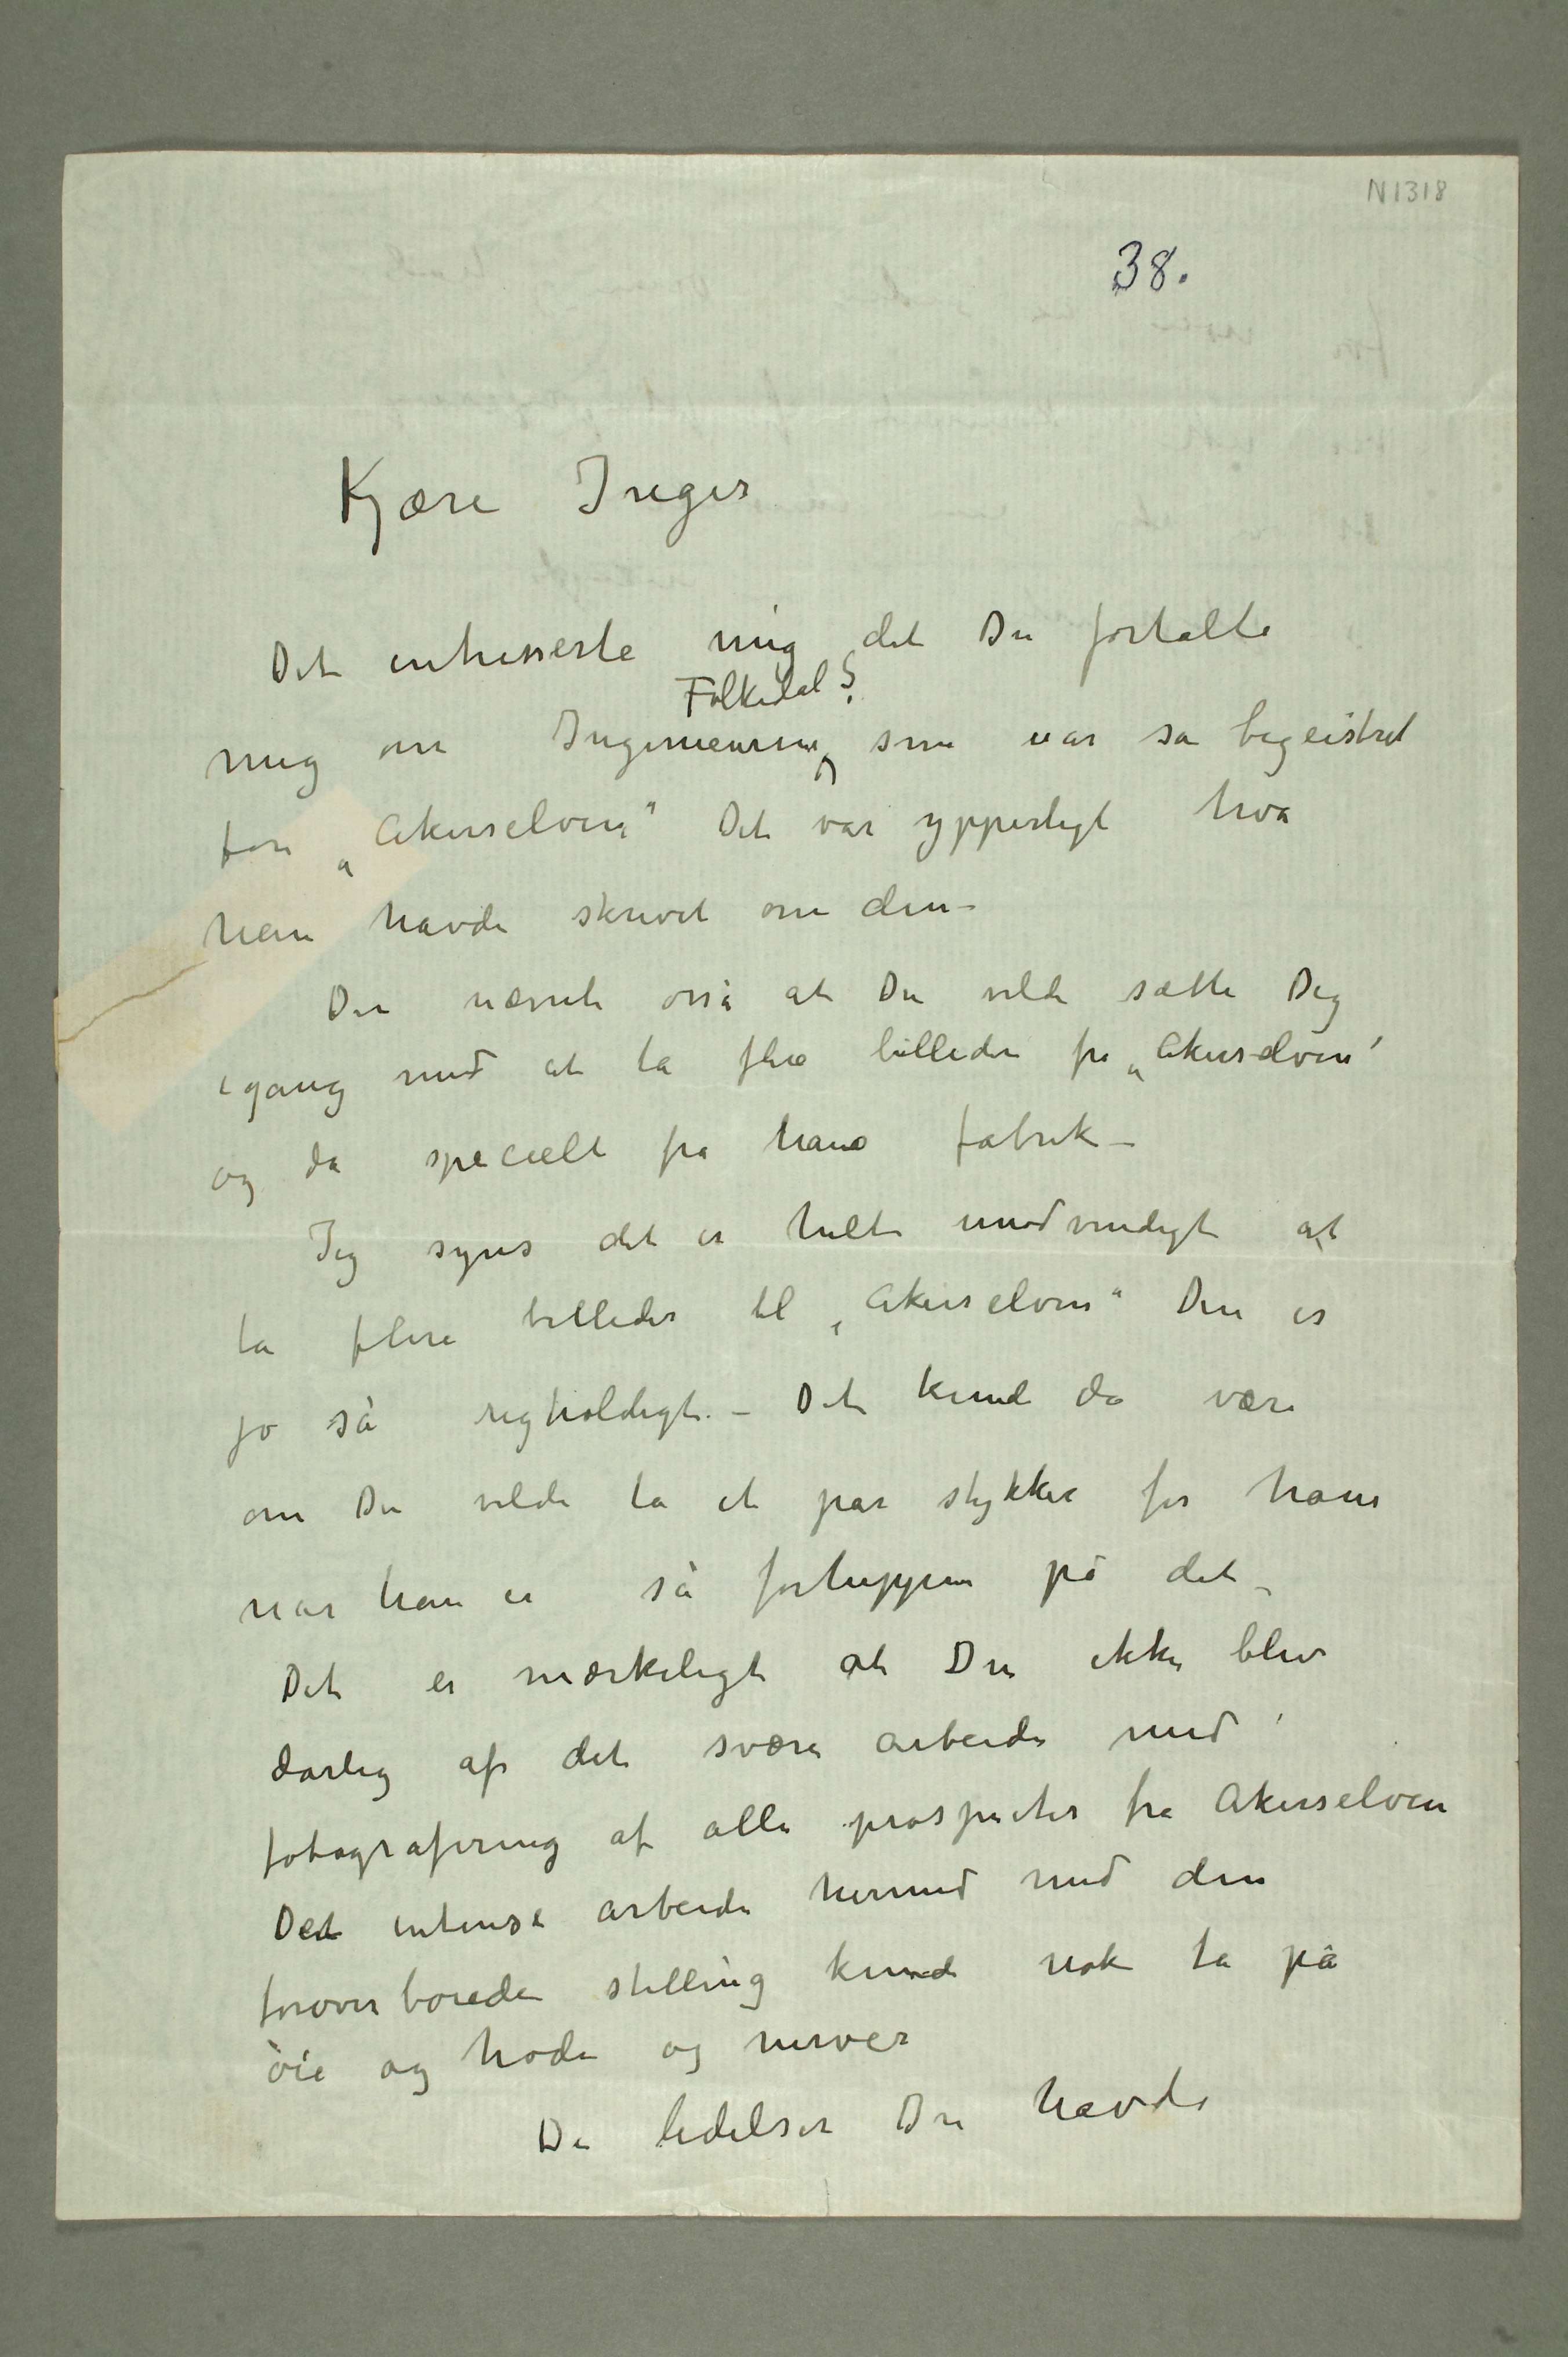 N1318
38.
Kjære Inger
Det intresserte mig det Du fortalte
Folkedal?
mig om Ingeniøren, som var så begeistret
for „Akerselven" Det var ypperligt hva
han havde skrevet om den –
Du nævnte osså at Du vilde sætte Dig
igang med at ta flere billeder fra „Akerselven"
og da specielt fra hans fabrik –
Jeg synes det er helt unødvendigt at
ta flere billeder til „Akerselven" Den er
jo så righoldigt. – Det kunde da være
om Du vilde ta et par stykker for ham
når han er så forhippen på det –
Det er mærkeligt at Du ikke blev
dårlig af det svære arbeide med
fotografering af alle prospekter fra Akerselven
Det intense arbeide hermed med den
foroverboiede stilling kunde nok ta på
öie og hode og nerver
De lidelser Du havde